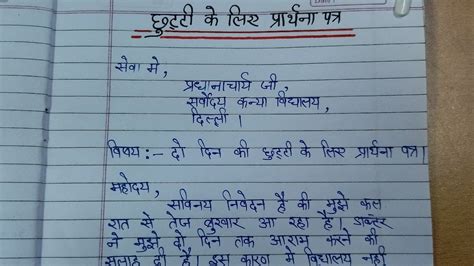 छुट्टी के लिए प्रार्थना पत्र
सेवा मे,
प्रधानाचार्य जी,
सर्वोदय कन्या विद्यालय,
दिल्ली।
विषय:- दो दिन की छुट्टी के लिए प्रार्थना पत्र।
महोदय,
सविनय निवेदन है की मुझे कल
रात से तेज बुखार आ रहा है। डाक्टर
ने मुझे दो दिन तक आराम करने की
सलाह दी है। इस कारण मे विद्यालय नही